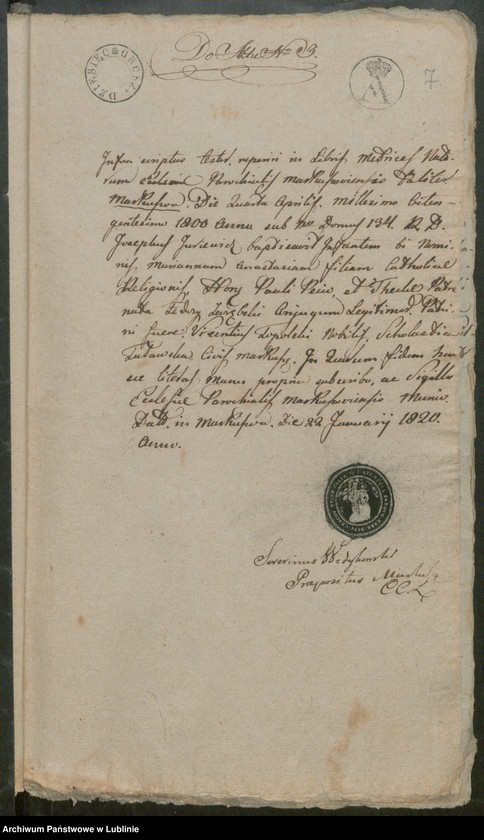 DZIESIĘC GROSZY
Do Aktu No 3.
7
Infra scriptus testor, reperiri in Libris Metrices Nato-
rum Ecclesiae Parochialis Markuszoviensis Taliter
Markuszow. Die Quarta Aprilis, millesimo Octin-
gentesimo 1800 Anno sub No Domus 134. R. D.
Josephus baptisavit Infantem bi Nomi-
nis, Mariannam Anastasiam filiam Catholicae
Religionis, Hons Pauli et Theclae
Conjugum Legitimor. Patri-
ni fuere: Vicentius Topolski Nobilis, Scholastica
Civis Markusz. In Quorum fidem has
ce literas Manu propria subscribo, ac Sigillo
Ecclesiae Parochialis Markuszoviensis Munio
Datt. in Markuszow. Die 22 Januarij 1820.
Anno.
Severinus
Praepositus
Archiwum Państwowe w Lublinie